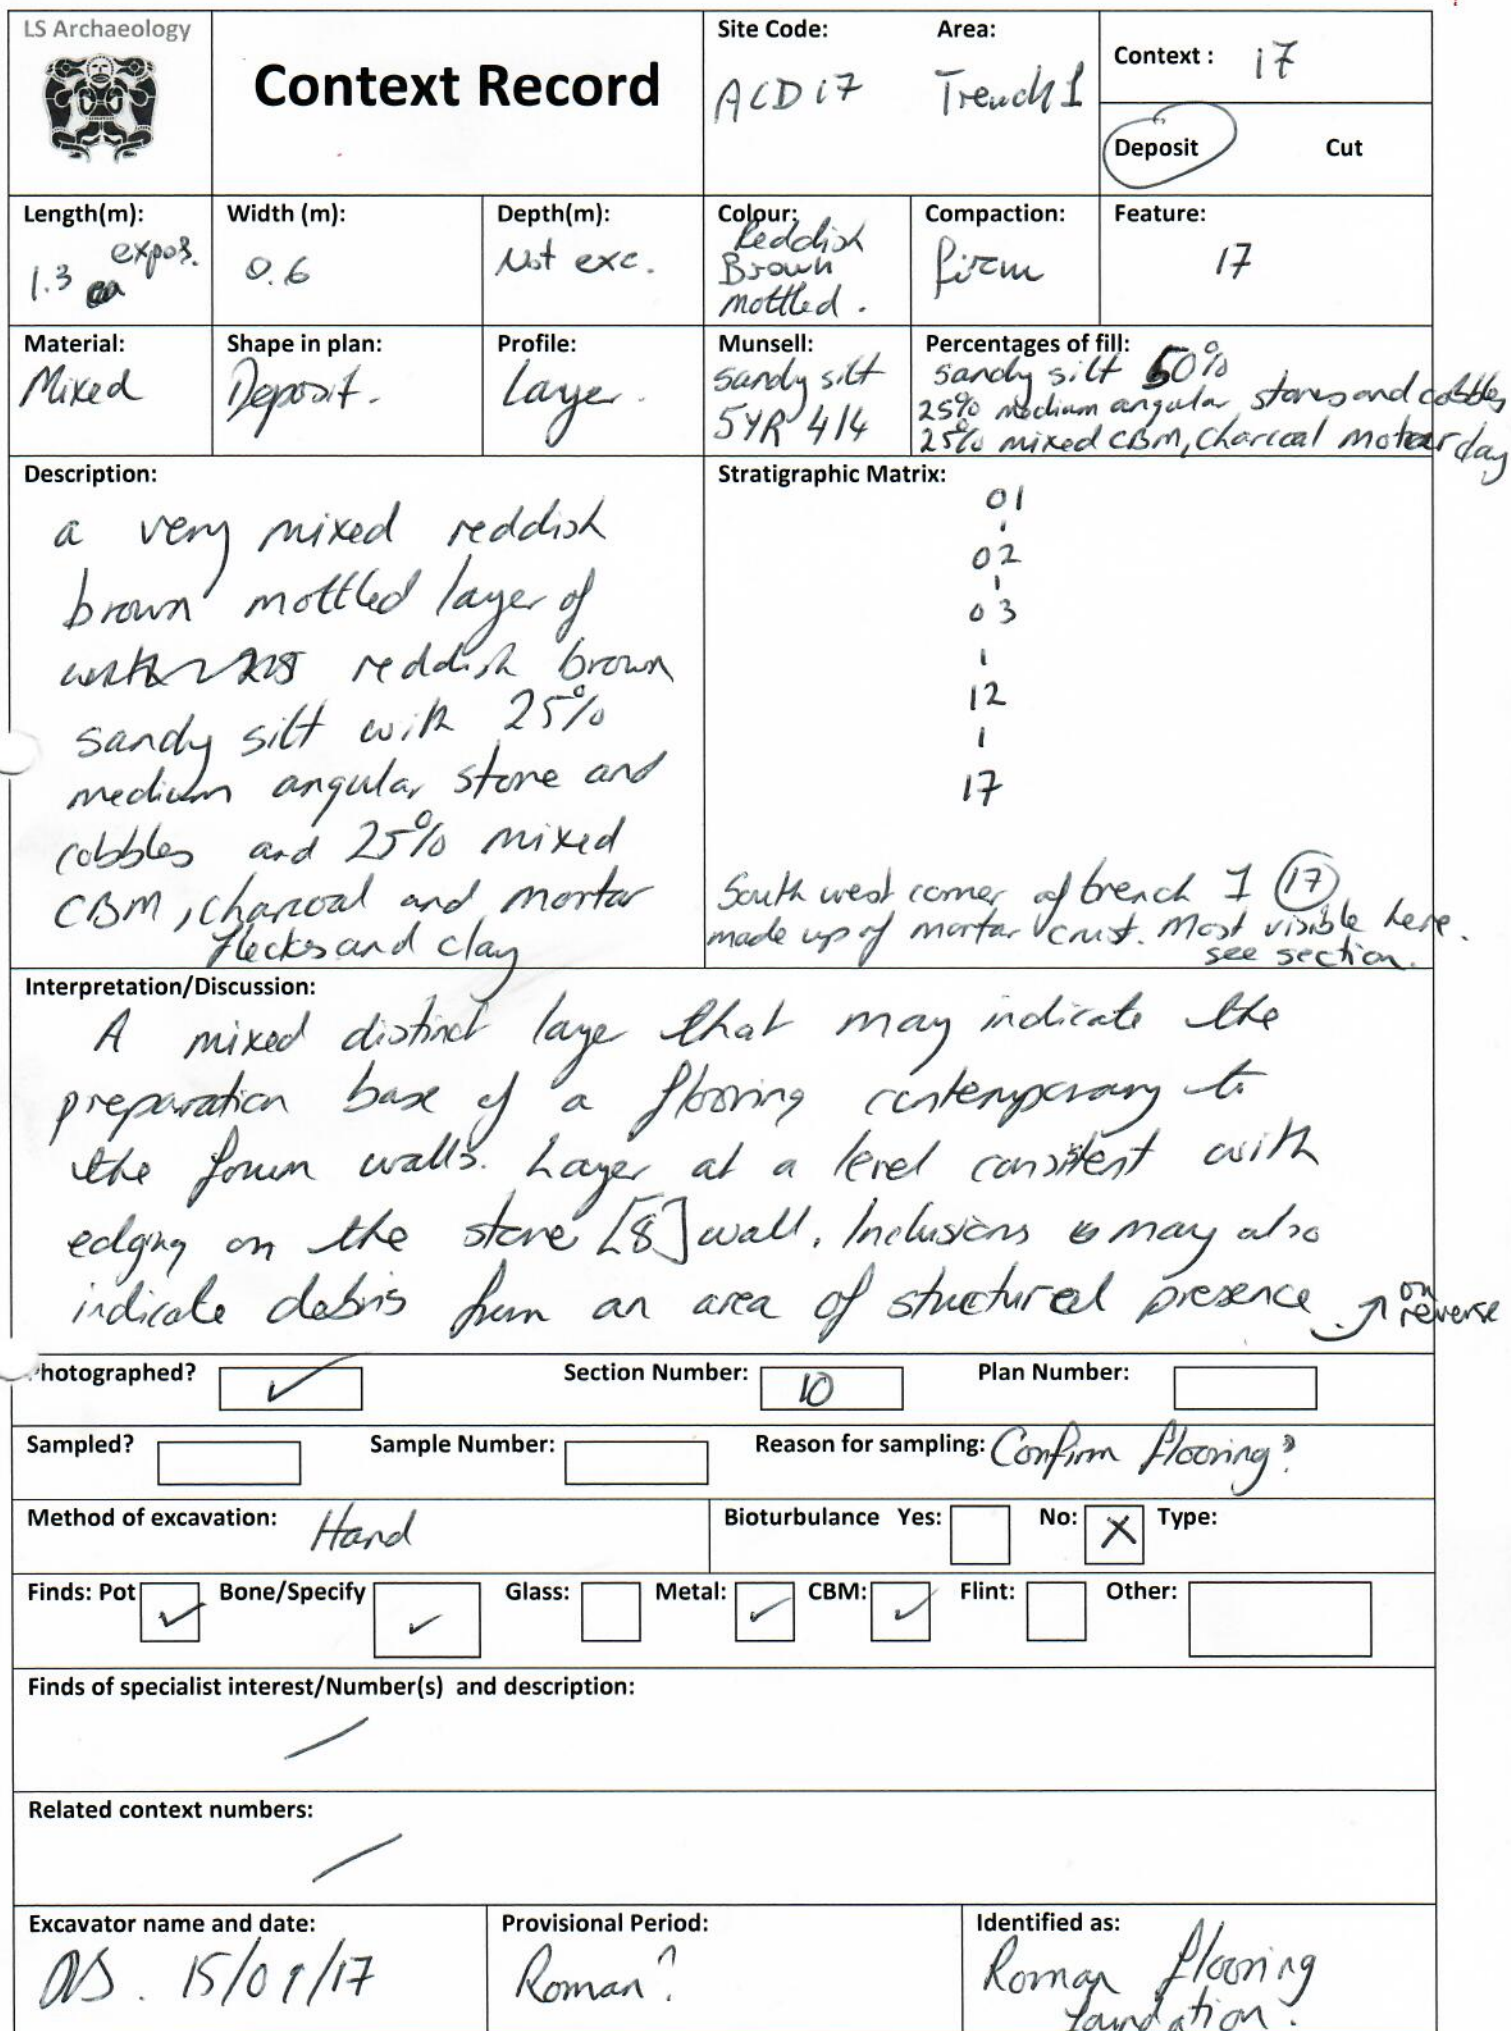 LS Archaeology
Context Record
Site Code:
ACD 17
Area:
Trench 1
Context : 17
Deposit Cut
Length(m):
expos.
1.3
Width (m):
0.6
Depth(m):
Not exc.
Colour:
Reddish
Brown
mottled.
Compaction:
firm
Feature:
17
Material:
Mixed
Shape in plan:
Deposit.
Profile:
Layer.
Munsell:
sandy silt
5YR 4/4
Percentages of fill:
sandy silt 50%
25% medium angular stones and cobbles
25% mixed CBM, charcoal clay
Description:
a very mixed reddish
brown mottled layer of
reddish brown
sandy silt with 25%
medium angular stone and
cobbles and 25% mixed
CBM, charcoal and mortar
flecks and clay
Stratigraphic Matrix:
01
02
03
12
17
South west corner of trench 1 17
made up of mortar crust. Most visible here.
see section.
Interpretation/Discussion:
A mixed distinct layer that may indicate the
preparation base of a flooring contemporary to
the forum walls. Layer at a level consistent with
edging on the stone [8] wall. Inclusions may also
indicate debris from an area of structural presence.
on
reverse
Photographed? ✓ Section Number: 10 Plan Number:
Sampled? Sample Number: Reason for sampling: Confirm flooring?
Method of excavation: Hand
Bioturbulance Yes: No: X Type:
Finds: Pot ✓ Bone/Specify ✓ Glass: Metal: ✓ CBM: ✓ Flint: Other:
Finds of specialist interest/Number(s) and description:
/
Related context numbers:
/
Excavator name and date:
15/09/17
Provisional Period:
Roman?
Identified as:
Roman flooring
foundation.